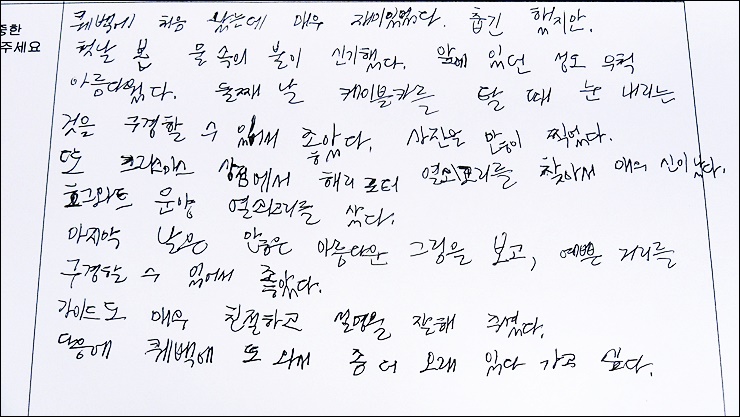 중한
주세요
퀘벡에 처음 왔는데 매우 재미있었다. 춥긴 했지만.
첫날 본 물 속의 불이 신기했다. 앞에 있던 성도 무척
아름다웠다. 둘째 날 케이블카를 탈 때 눈 내리는
것을 구경할 수 있어서 좋았다. 사진은 많이 찍었다.
또 크리스마스 상점에서 해리포터 열쇠고리를 찾아서 매우 신이 났다.
호그와트 문양 열쇠고리를 샀다.
마지막 날은 많은 아름다운 그림을 보고, 예쁜 거리를
구경할 수 있어서 좋았다.
가이드도 매우 친절하고 설명을 잘해 주셨다.
다음에 퀘벡에 또 와서 좀 더 오래 있다 가고 싶다.